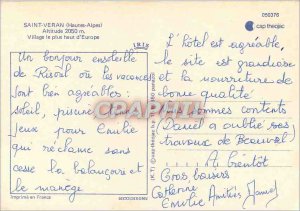 SAINT-VERAN (Hautes-Alpes)
Altitude 2050 m.
Village le plus haut d'Europe
050376
cap théojac
IRIS
Un bonjour ensoleillé
de Risoul où les vacances
sont bien agréables :
soleil, piscine,
jeux pour Emilie
qui réclame sans
cesse la balançoire et
le manège
Imprimé en France
L'hôtel est agréable,
le site est grandiose
et la nourriture de
bonne qualité
sommes contents
(Daniel a oublié ses
travaux de Beauval)
A bientôt
Gros baisers
Catherine
Emilie Amitiés Daniel